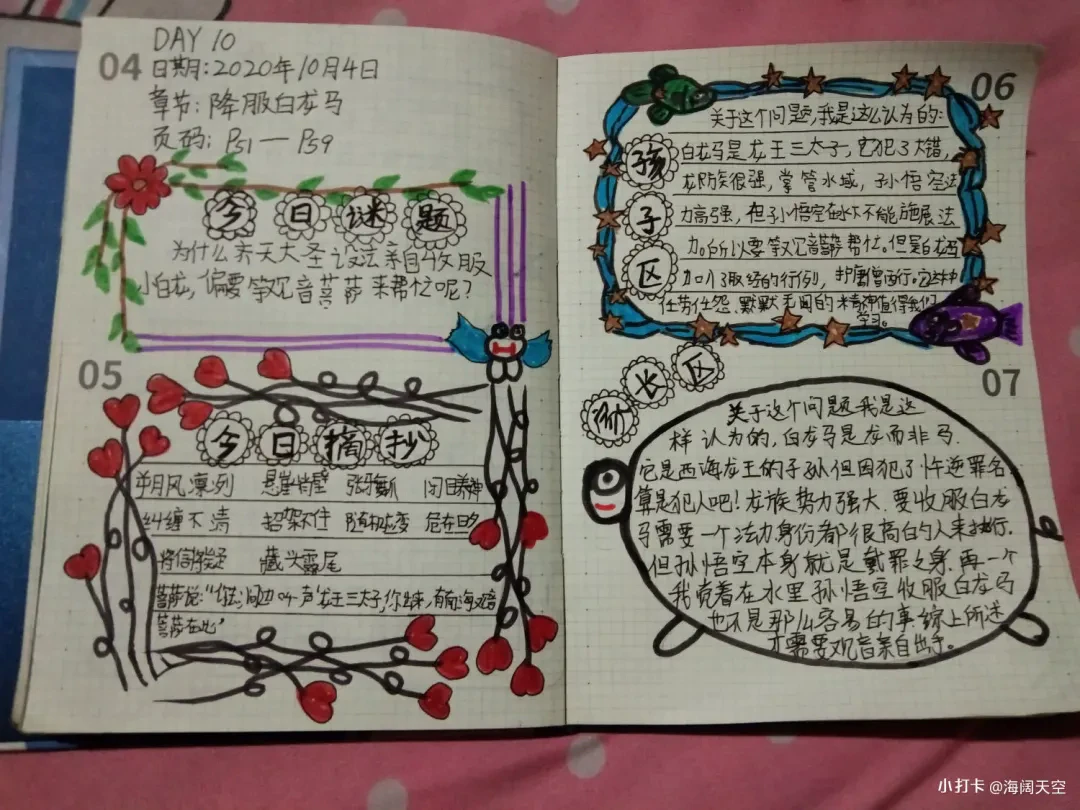 04
DAY 10
日期:2020年10月4日
章节:降服白龙马
页码:P51—P59
今日谜题
为什么齐天大圣没法亲自收服
小白龙,偏要等观音菩萨来帮忙呢?
05
今日摘抄
朔风凛冽 悬崖峭壁 张牙舞爪 闭目养神
纠缠不清 招架不住 随机应变 危在旦夕
将信将疑 藏头露尾
菩萨说:“你去涧边叫一声‘龙王三太子,你出来,有南海观音
菩萨在此’
06
关于这个问题,我是这么认为的:
孩子区
白龙马是龙王三太子,它犯了大错,
龙族很强,掌管水域,孙悟空法
力高强,但孙悟空在水下不能施展法
力,所以要等观音菩萨帮忙。但是白龙马
加入了取经的行列,护唐僧西行。它这种
任劳任怨、默默无闻的精神值得我们
学习。
07
家长区
关于这个问题我是这
样认为的,白龙马是龙而非马.
它是西海龙王的子孙但因犯了忤逆罪名
算是犯人吧!龙族势力强大.要收服白龙
马需要一个法力身份都很高的人来执行.
但孙悟空本身就是戴罪之身.再一个
我觉着在水里孙悟空收服白龙马
也不是那么容易的事综上所述
才需要观音亲自出手。
小打卡 @海阔天空